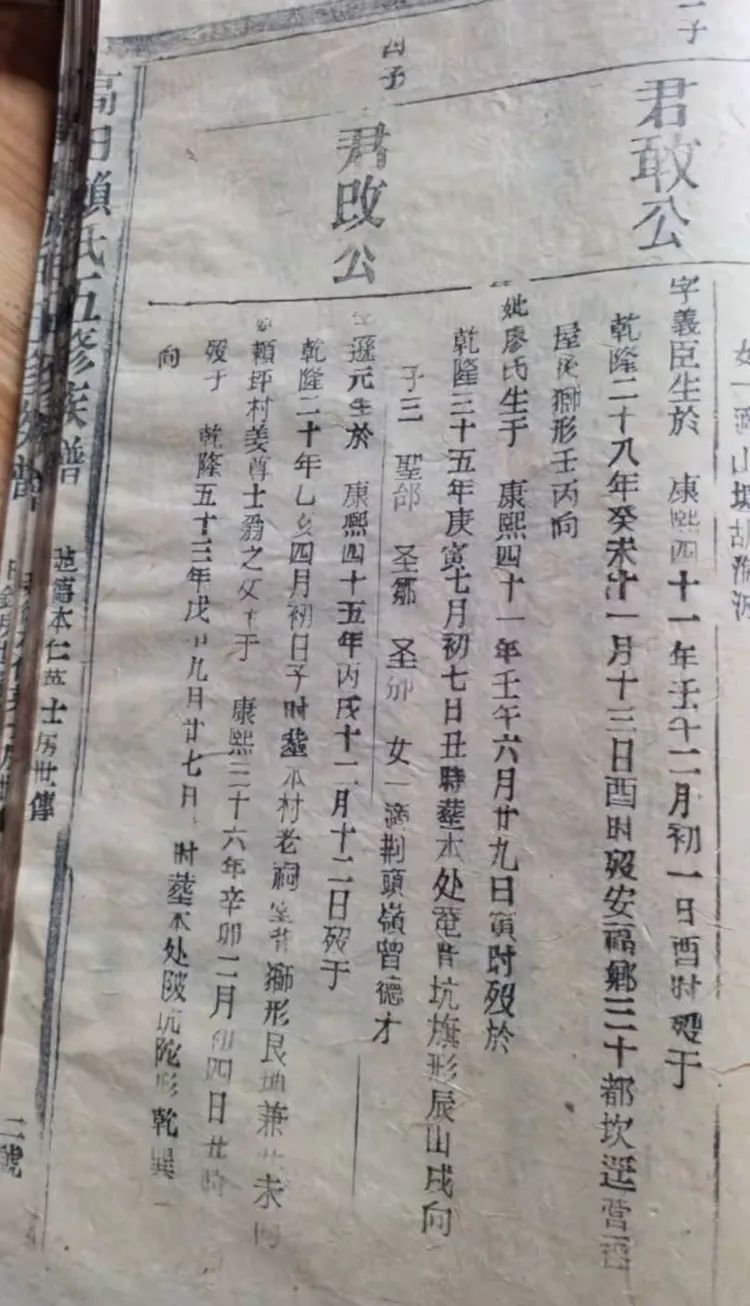 女一適山塘胡
二子
君敢公
字義臣生於 康熙四十一年壬午二月初一日酉时殁于
乾隆二十八年癸未十一月十三日酉时殁安福鄉三十都坎逕營
屋後獅形壬丙向
妣廖氏生于 康熙四十一年壬午六月廿九日寅时殁於
乾隆三十五年庚寅七月初七日丑時塟本处竜背坑旗形辰山戌向
子三 聖郃 圣鄒 圣 女一適荆頭嶺曾德才
四子
君改公
遜元生於 康熙四十五年丙戌十二月十二日殁于
乾隆二十年乙亥四月初日子时塟本村老祠堂背獅形艮坤兼 未向
賴坪村姜尊士翁之女生于 康熙三十六年辛卯二月初四日 時
殁于 乾隆五十三年戊 九日廿七日 时塟本处陂坑陀形乾巽
向
高田賴氏五修族譜
本仁 士房世傳
二號